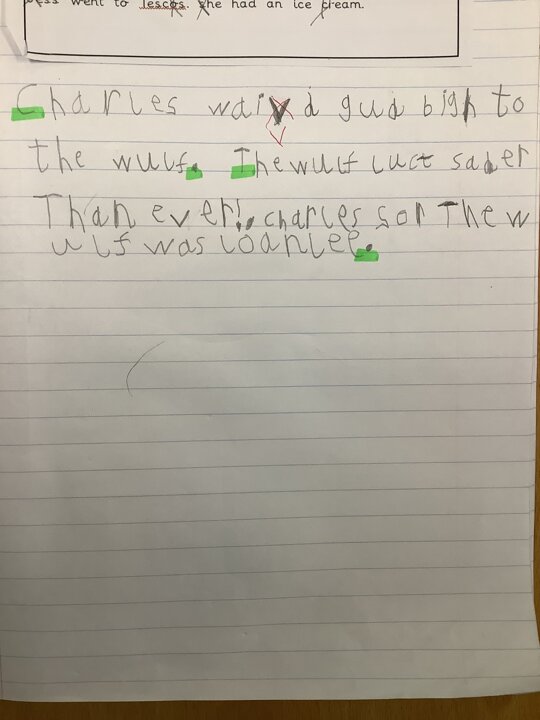 went to Tescos. She had an ice cream.
Charles waivd gud bigh to
the wulf. The wulf luct sader
Than ever!. charles sor The w
ulf was loanlee.